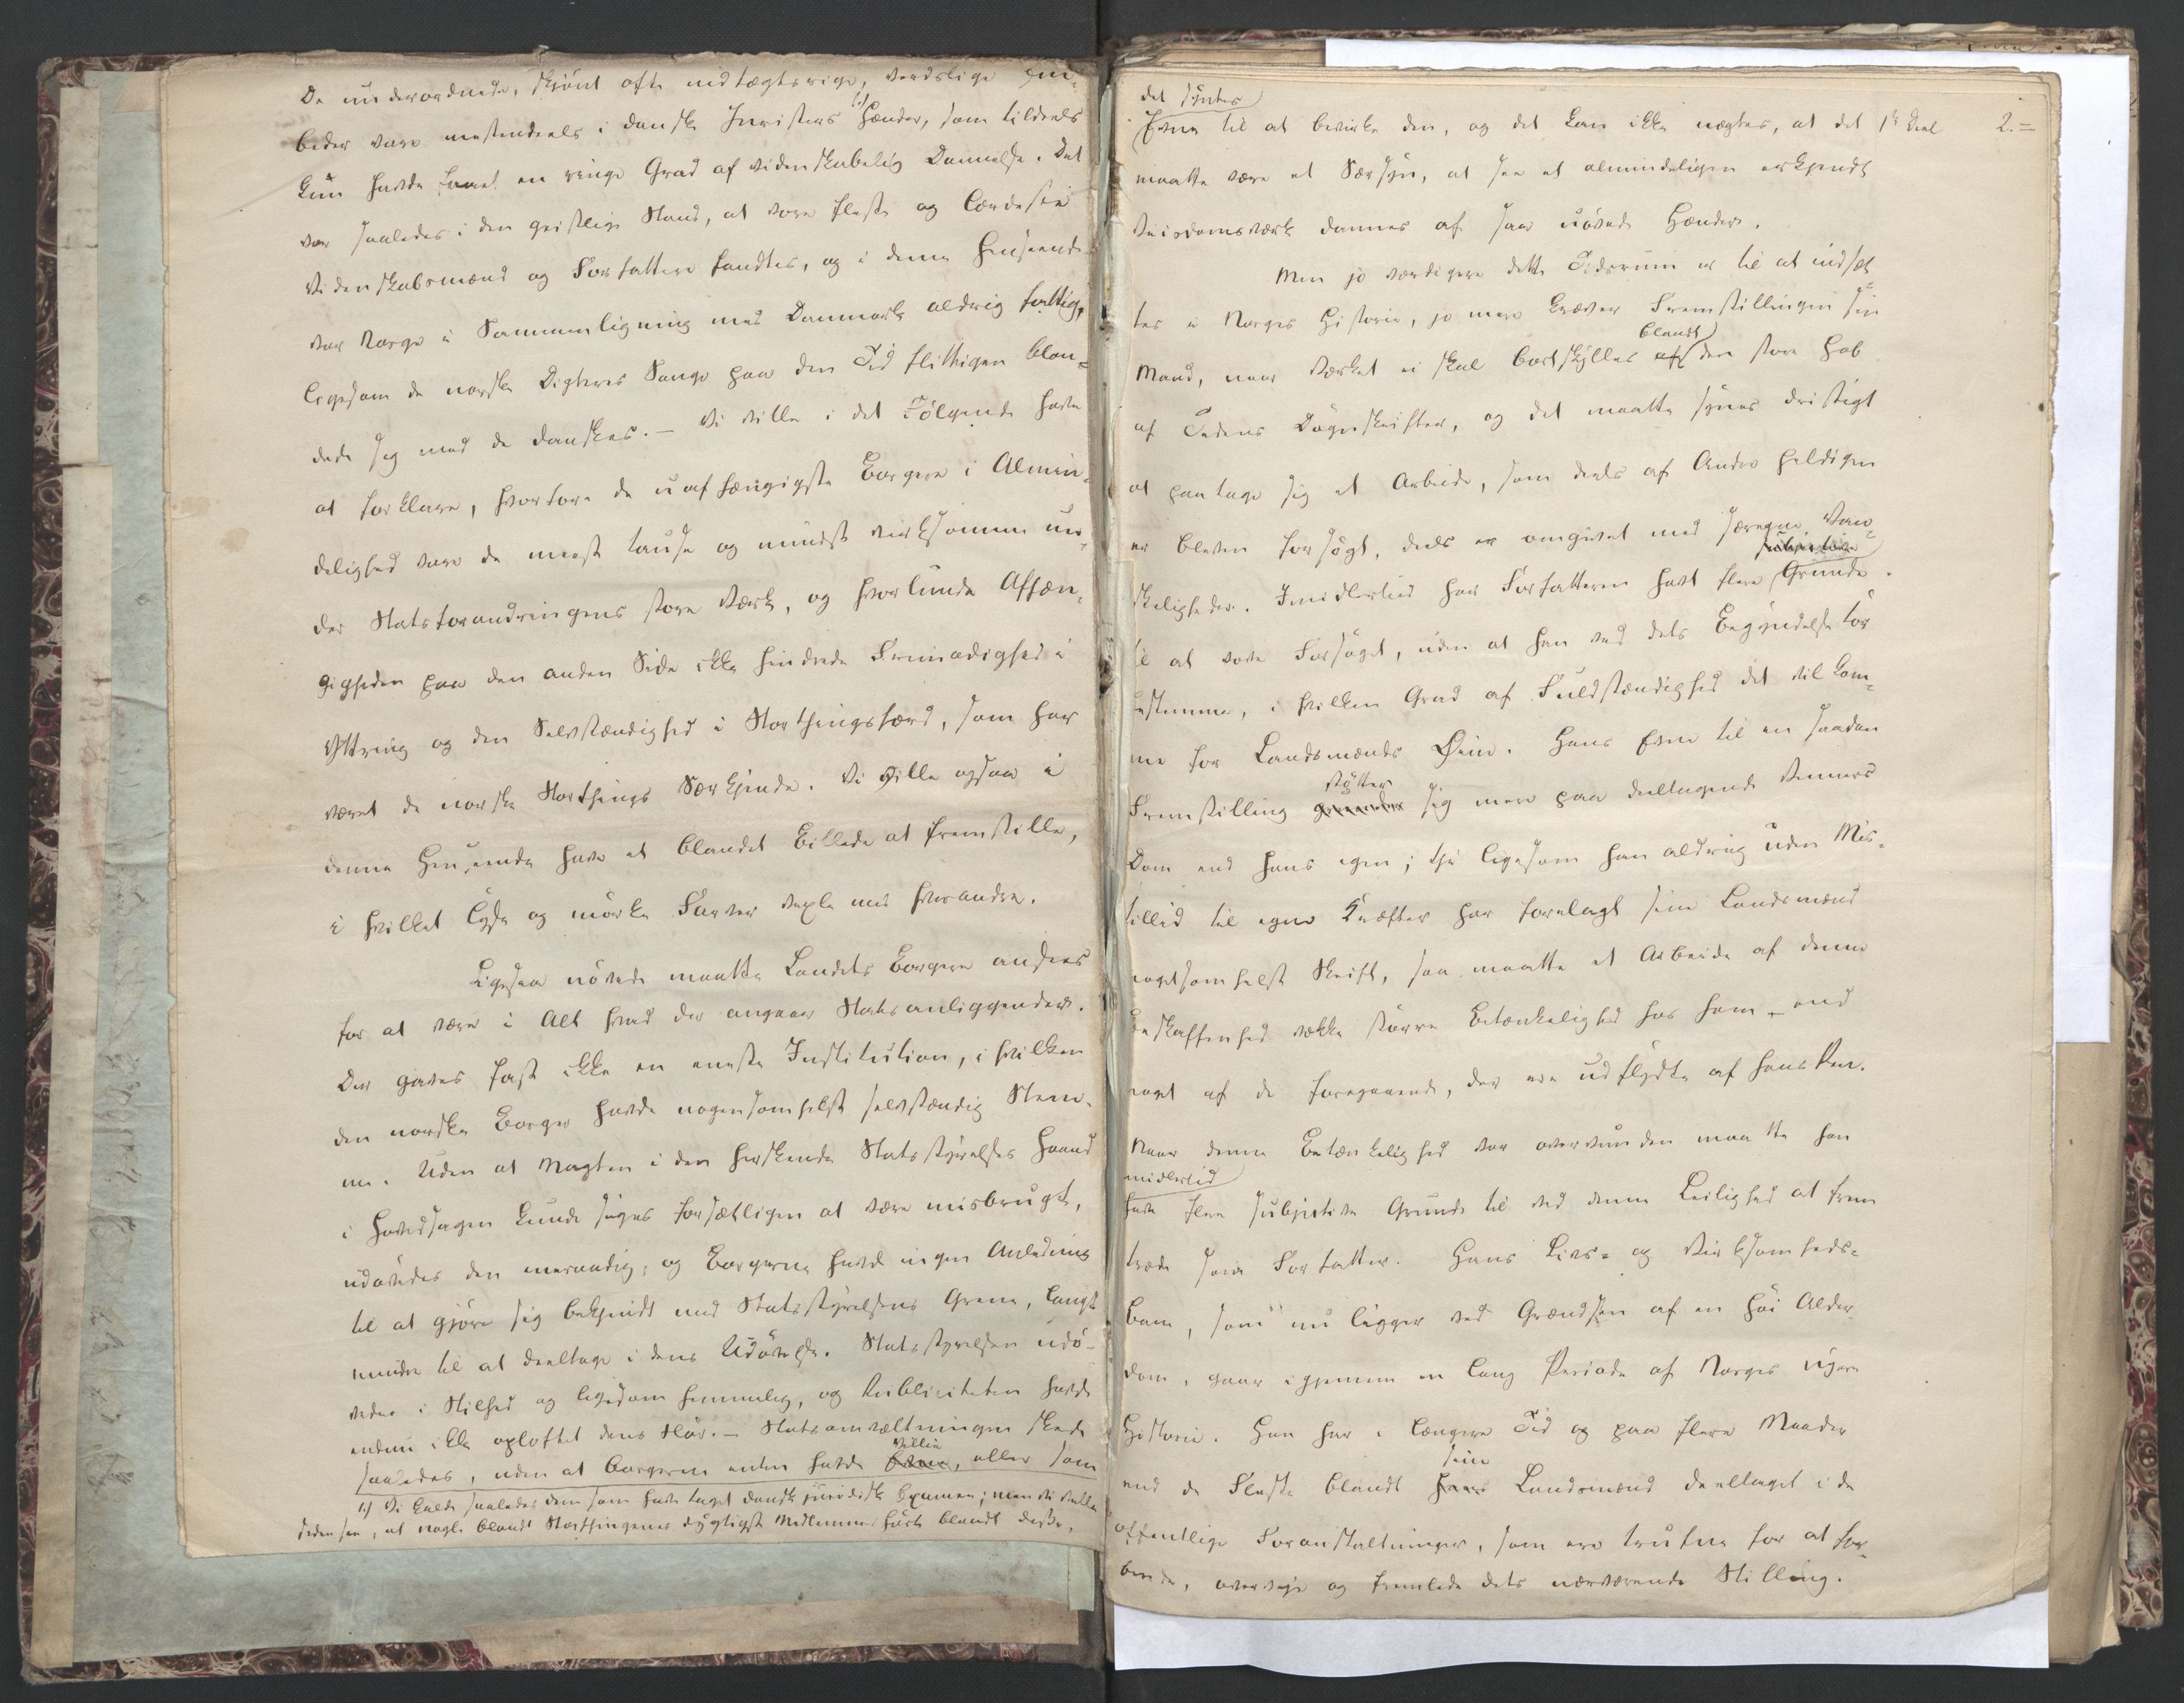 De underordnede, skjönt ofte indtægtsrige, verdslige Em-
beder vare mestendeels i danske Juristers 1) Hænder, som tildeels
kun havde faaet en ringe Grad af videnskabelig Dannelse. Det
var saaledes i den geistlige Stand, at vore fleste og lærdeste
Videnskabsmænd og Forfattere fandtes, og i denne Henseende
var Norge i Sammenligning med Danmark aldrig fattig,
ligesom de norske Digteres Sange paa den Tid flittigen blan-
dede sig med de danskes. – Vi ville i det Fölgende have
at forklare, hvorfore de uafhængigste Borgere i Almin-
delighed vare de meest tause og mindst virksomme un-
der Statsforandringens store Værk, og hvorlunde Afhæn-
gigheden paa den anden Side ikke hindrede Frimodighed i
Yttring og den Selvstændighed i Storthingsfærd, som har
været de norske Storthings Særkjende. Vi ville ogsaa i
denne Henseende have et blandet Billede at fremstille,
i hvilket lyse og mörke Farver vexle med hverandre.
Ligesaa uövede maatte Landets Borgere ansees
for at være i Alt hvad der angaaer Statsanliggender.
Der gaves fast ikke en eneste Institution, i hvilken
den norske Borger havde nogensomhelst selvstændig Stem-
me. Uden at Magten i den herskende Statsstyrelses Haand
i Hovedsagen kunde siges forsætligen at være misbrugt,
udövedes den eneraadig, og Borgerne havde ingen Anledning
til at gjöre sig bekjendt med Statsstyrelsens Grene, langt
mindre til at deeltage i dens Udövelse. Statsstyrelsen udö-
vedes i Stilhed og ligesom hemmelig, og Publiciteten havde
endnu ikke oplöftet dens Slör. – Statsomvæltningen skede
Villie
saaledes, uden at Borgerne enten havde Evne, eller som
1) Vi kalde saaledes dem som have taget dansk juridisk Examen; man vil
siden see, at nogle blandt Storthingenes dygtigste Medlemmer hörte blandt disse.
det syntes
Evne til at bevirke den, og det kan ikke nægtes, at det 1ste Deel 2.=
maatte være et Særsyn, at see et almindeligen erkjendt
Viisdomsværk dannes af saa uövede Hænder.
Men jo værdigere dette Tidsrum er til at indsæt-
tes i Norges Historie, jo mere kræver Fremstillingen sin
blandt
Mand, naar Værket ei skal bortskylles af den store Hob
af Tidens Dögnskrifter, og det maatte synes dristigt
at paatage sig et Arbeide, som deels af Andre heldigen
er bleven forsögt, deels er omgivet med særegne Van-
subjective
skeligheder. Imidlertid har Forfatteren havt flere Grunde
til at vove Forsöget, uden at han ved dets Begyndelse tör
bestemme, i hvilken Grad af Fuldstændighed det vil kom-
me for Landsmænds Öine. Hans Evne til en saadan
stötter
Fremstilling grunder sig mere paa deeltagende Venners
Dom end hans egen; thi ligesom han aldrig uden Mis-
tillid til egne Kræfter har forelagt sine Landsmænd
nogetsomhelst Skrift, saa maatte et Arbeide af denne
Beskaffenhed vække större Betænkelighed hos ham, end
noget af de foregaaende, der ere udflydte af hans Pen.
Naar denne Betænkelighed var overvunden maatte han
imidlertid
have flere subjective Grunde til ved denne Leilighed at frem
træde som Forfatter. Hans Livs- og Virksomheds-
bane, som nu ligger ved Grændsen af en höi Alder-
dom, gaaer igjennem en lang Periode af Norges nyere
Historie. Han har i længere Tid og paa flere Maader
sine
end de Fleste blandt hans Landsmænd deeltaget i de
offentlige Foranstaltninger, som ere trufne for at for-
berede, overveje og fremlede dets nærværende Stilling.